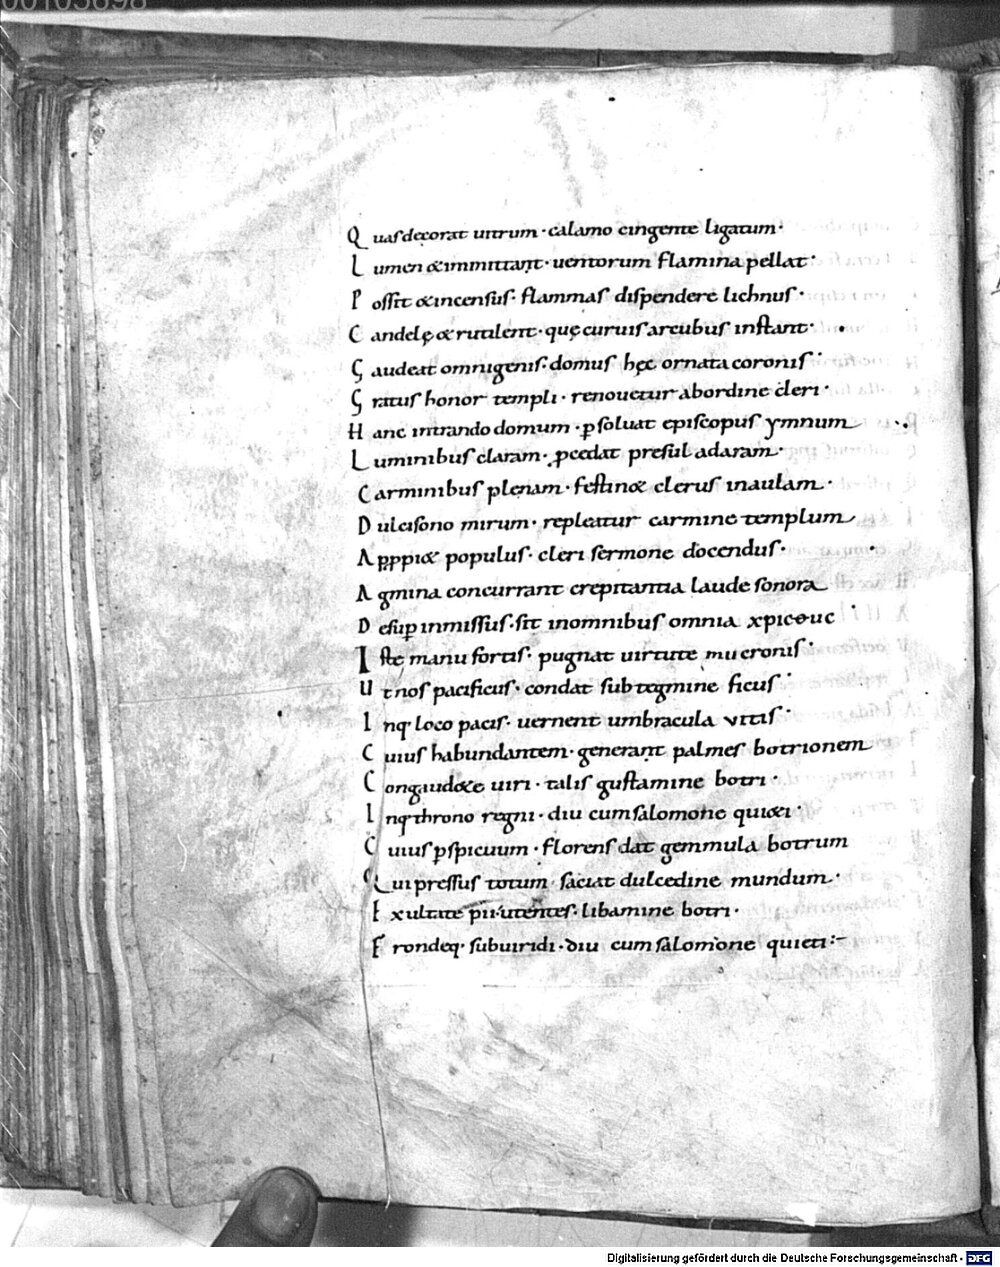 00103898
Q uasdecorat uitrum · calamo cingente ligatum·
L umen &immittant· uentorum flamina pellat·
P ossit &incensus· flammas dispendere lichnus·
C andelę & rutilent· quę curuis arcubus instant·
G audeat omnigenis· domus hęc ornata coronis·
G ratus honor templi· renouetur abordine cleri·
H anc intrando domum· ꝑsoluat episcopus ymnum
L uminibus claram· ꝓcedat presul adaram·
C arminibus plenam· festin& clerus inaulam·
D ulcisono mirum· repleatur carmine templum
A ꝓppi& populus· cleri sermone docendus·
A gmina concurrant crepitantia laude sonora
D esuꝑ inmissus· sit inomnibus omnia xpicouc
I ste manu fortis· pugnat uirtute mucronis·
U t nos pacificus· condat subtegmine ficus·
I nq· loco pacis· uernent umbracula vitis·
C uius habundantem· generant palmes botrionem
C ongaud&e uiri · talis gustamine botri·
I nq· throno regni· diu cumsalomone qui&i·
C uius ꝑspicuum · florens dat gemmula botrum
Q ui pressus totum· saciat dulcedine mundum·
E xultate pii· utentes· libamine botri·
F rondeq· subuiridi· diu cumsalomone quieti:-
Digitalisierung gefördert durch die Deutsche Forschungsgemeinschaft - DFG